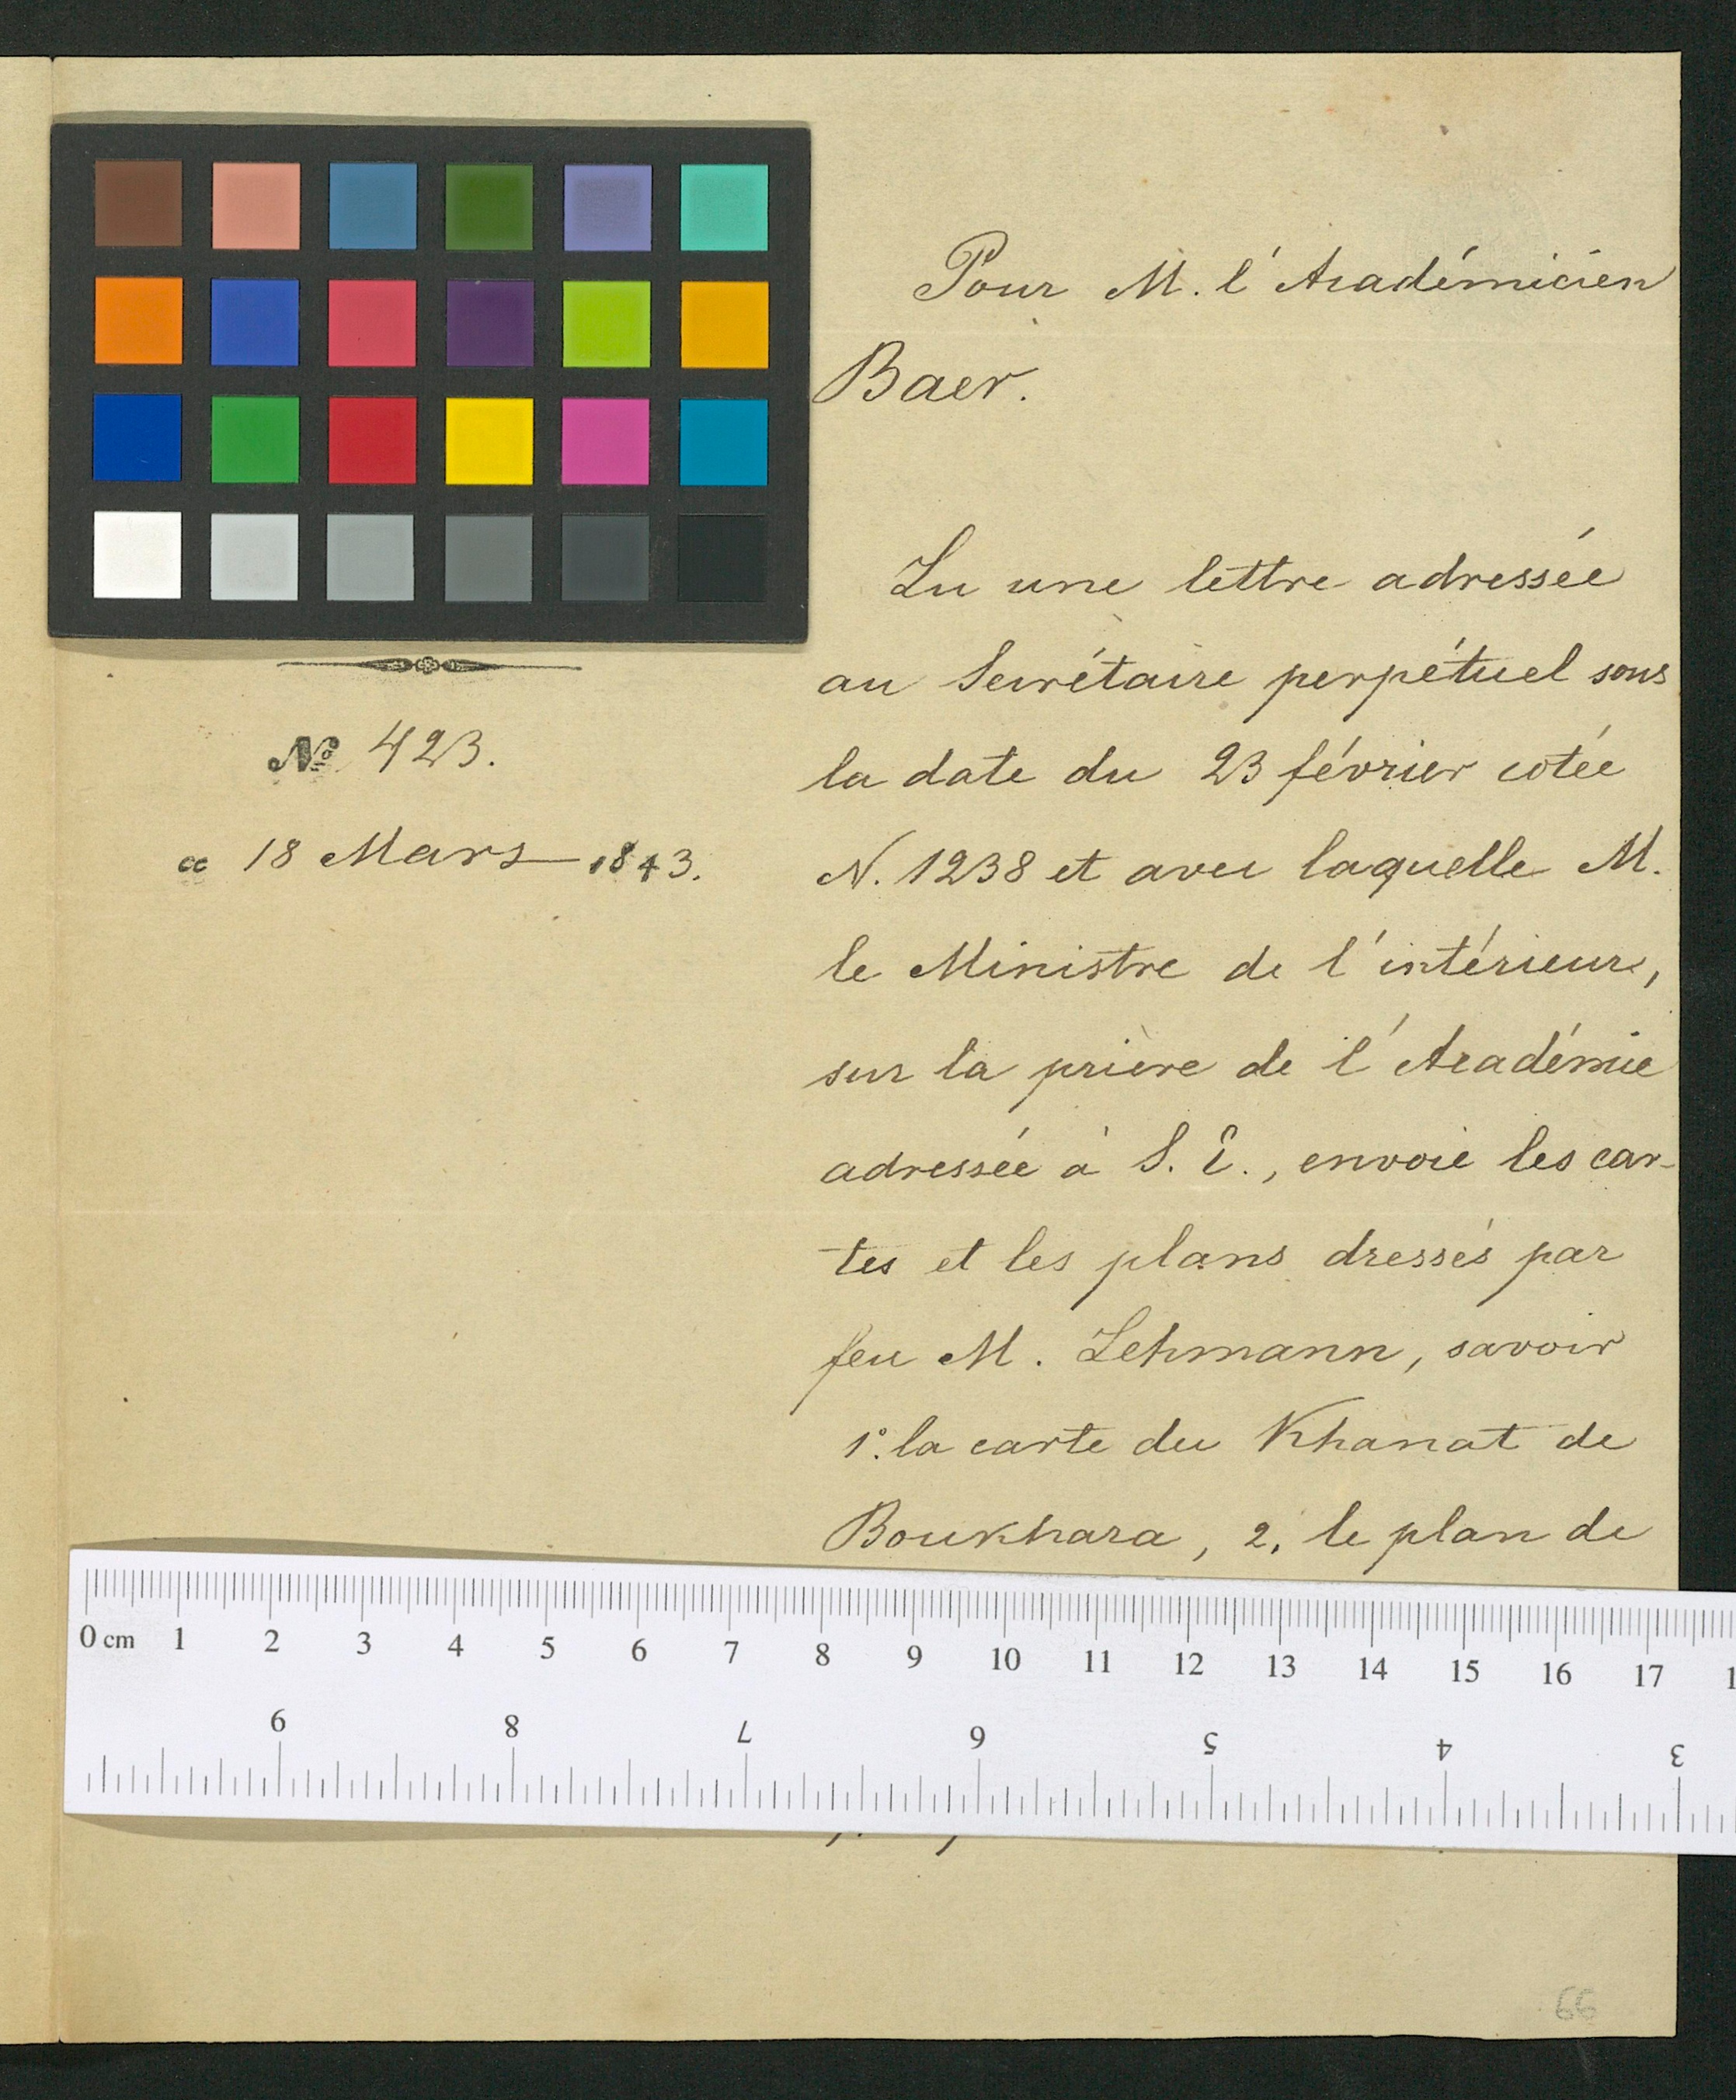 Pour M. l'Académicien
Baer.
№ 423.
ce 18 Mars 1843.
Lu une lettre adressée
au Secrétaire perpétuel sous
la date du 23 février cotée
N. 1238 et avec laquelle M.
le Ministre de l'intérieur,
sur la prière de l'Académie
adressée à S. E., envoie les car-
tes et les plans dressés par
feu M. Lehmann, savoir
1° la carte du Khanat de
Boukhara, 2. le plan de
0 cm 1 2 3 4 5 6 7 8 9 10 11 12 13 14 15 16 17 1
9 8 7 6 5 4 3
66